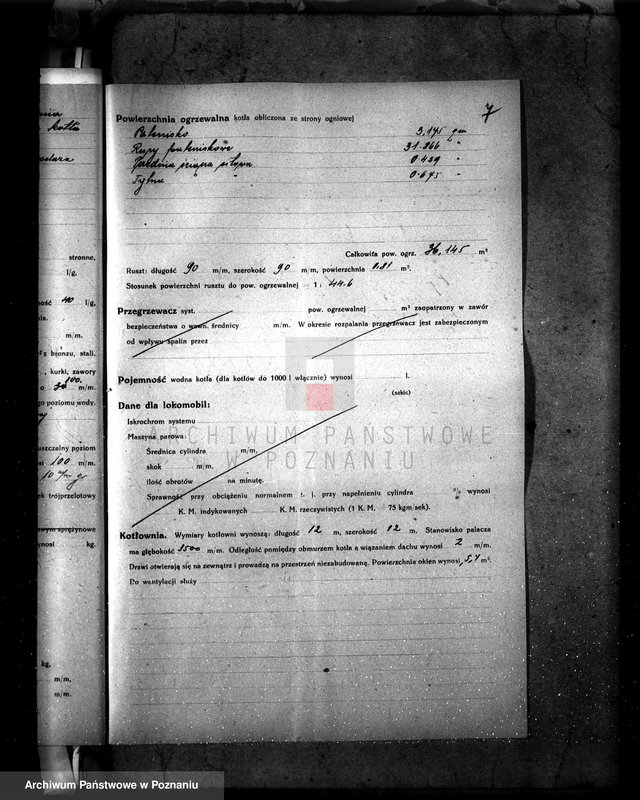 7
Powierzchnia ogrzewalna kotła obliczona ze strony ogniowej
Palenisko 3.145 qm
Rury 31.866 "
0.459 "
Tylna " " 0.675 "
Całkowita pow. ogrz. 36,145 m²
Ruszt: długość 90 m/m, szerokość 90 m/m, powierzchnia 0.81 m².
Stosunek powierzchni rusztu do pow. ogrzewalnej — 1 : 44.6
Przegrzewacz syst. pow. ogrzewalnej m² zaopatrzony w zawór
bezpieczeństwa o wewn. średnicy m/m. W okresie rozpalania przegrzewacz jest zabezpieczonym
od wpływu spalin przez
Pojemność wodna kotła (dla kotłów do 1000 l włącznie) wynosi l.
(szkic)
Dane dla lokomobil:
Iskrochrom systemu
Maszyna parowa:
Średnica cylindra m/m.
skok m/m.
Ilość obrotów na minutę.
Sprawność przy obciążeniu normalnem t. j. przy napełnieniu cylindra % wynosi
K. M. indykowanych K. M. rzeczywistych (1 K. M. = 75 kgm/sek).
Kotłownia. Wymiary kotłowni wynoszą: długość 12 m, szerokość 12 m. Stanowisko palacza
ma głębokość 3500 m/m. Odległość pomiędzy obmurzem kotła a wiązaniem dachu wynosi 2 m/m.
Drzwi otwierają się na zewnątrz i prowadzą na przestrzeń niezabudowaną. Powierzchnia okien wynosi 5,7 m².
Do wentylacji służy
kotła
stronne,
l/g.
ność 40 l/g,
m/m.
z bronzu, stali.
, kurki, zawory
100.
o m/m.
go poziomu wody.
uszczalny poziom
100 m/m.
ek trójprzelotowy
wym sprężynowe
ynosi kg.
kg,
m/m,
m/m.
ARCHIWUM PAŃSTWOWE
W POZNANIU
Archiwum Państwowe w Poznaniu